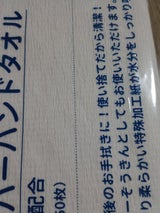 パーハンドタオル
配合
0枚)
後のお手拭きに!使い捨てだから清潔!
ーぞうきんとしてもお使いいただけます。
り柔らかい特殊加工紙が水分をしっかり